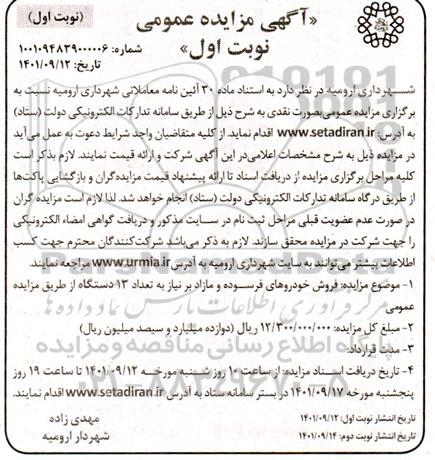 «آگهی مزایده عمومی
(نوبت اول)
نوبت اول»
شماره: ۱۰۰۱۰۹۴۸۳۹۰۰۰۰۰۶
تاریخ: ۱۴۰۱/۰۹/۱۲
شهرداری ارومیه در نظر دارد به استناد ماده ۳۰ آئین نامه معاملاتی شهرداری ارومیه نسبت به
برگزاری مزایده عمومی‌بصورت نقدی به شرح ذیل از طریق سامانه تدارکات الکترونیکی دولت (ستاد)
به آدرس: www.setadiran.ir اقدام نماید. از کلیه متقاضیان واجد شرایط دعوت به عمل می‌آید
در مزایده ذیل به شرح مشخصات اعلامی‌در این آگهی شرکت و ارائه قیمت نمایند. لازم بذکر است
کلیه مراحل برگزاری مزایده از دریافت اسناد تا ارائه پیشنهاد قیمت مزایده‌گران و بازگشایی پاکت‌ها
از طریق درگاه سامانه تدارکات الکترونیکی دولت (ستاد) انجام خواهد شد. لذا لازم است مزایده گران
در صورت عدم عضویت قبلی مراحل ثبت نام در سایت مذکور و دریافت گواهی امضاء الکترونیکی
را جهت شرکت در مزایده محقق سازند. لازم به ذکر می‌باشد شرکت‌کنندگان محترم جهت کسب
اطلاعات بیشتر می‌توانند به سایت شهرداری ارومیه به آدرس www.urmia.ir مراجعه نمایند.
۱- موضوع مزایده: فروش خودروهای فرسوده و مازاد بر نیاز به تعداد ۱۳ دستگاه از طریق مزایده
عمومی
۲- مبلغ کل مزایده: ۱۲/۳۰۰/۰۰۰/۰۰۰ ریال (دوازده میلیارد و سیصد میلیون ریال)
۳- مدت قرارداد:
۴- تاریخ دریافت اسناد مزایده: از ساعت ۱۰ روز شنبه مورخه ۱۴۰۱/۰۹/۱۲ تا ساعت ۱۹ روز
پنجشنبه مورخه ۱۴۰۱/۰۹/۱۷ در بستر سامانه ستاد به آدرس www.setadiran.ir اقدام نمایند.
تاریخ انتشار نوبت اول: ۱۴۰۱/۰۹/۱۲
مهدی زاده
تاریخ انتشار نوبت دوم: ۱۴۰۱/۰۹/۱۴
شهردار ارومیه